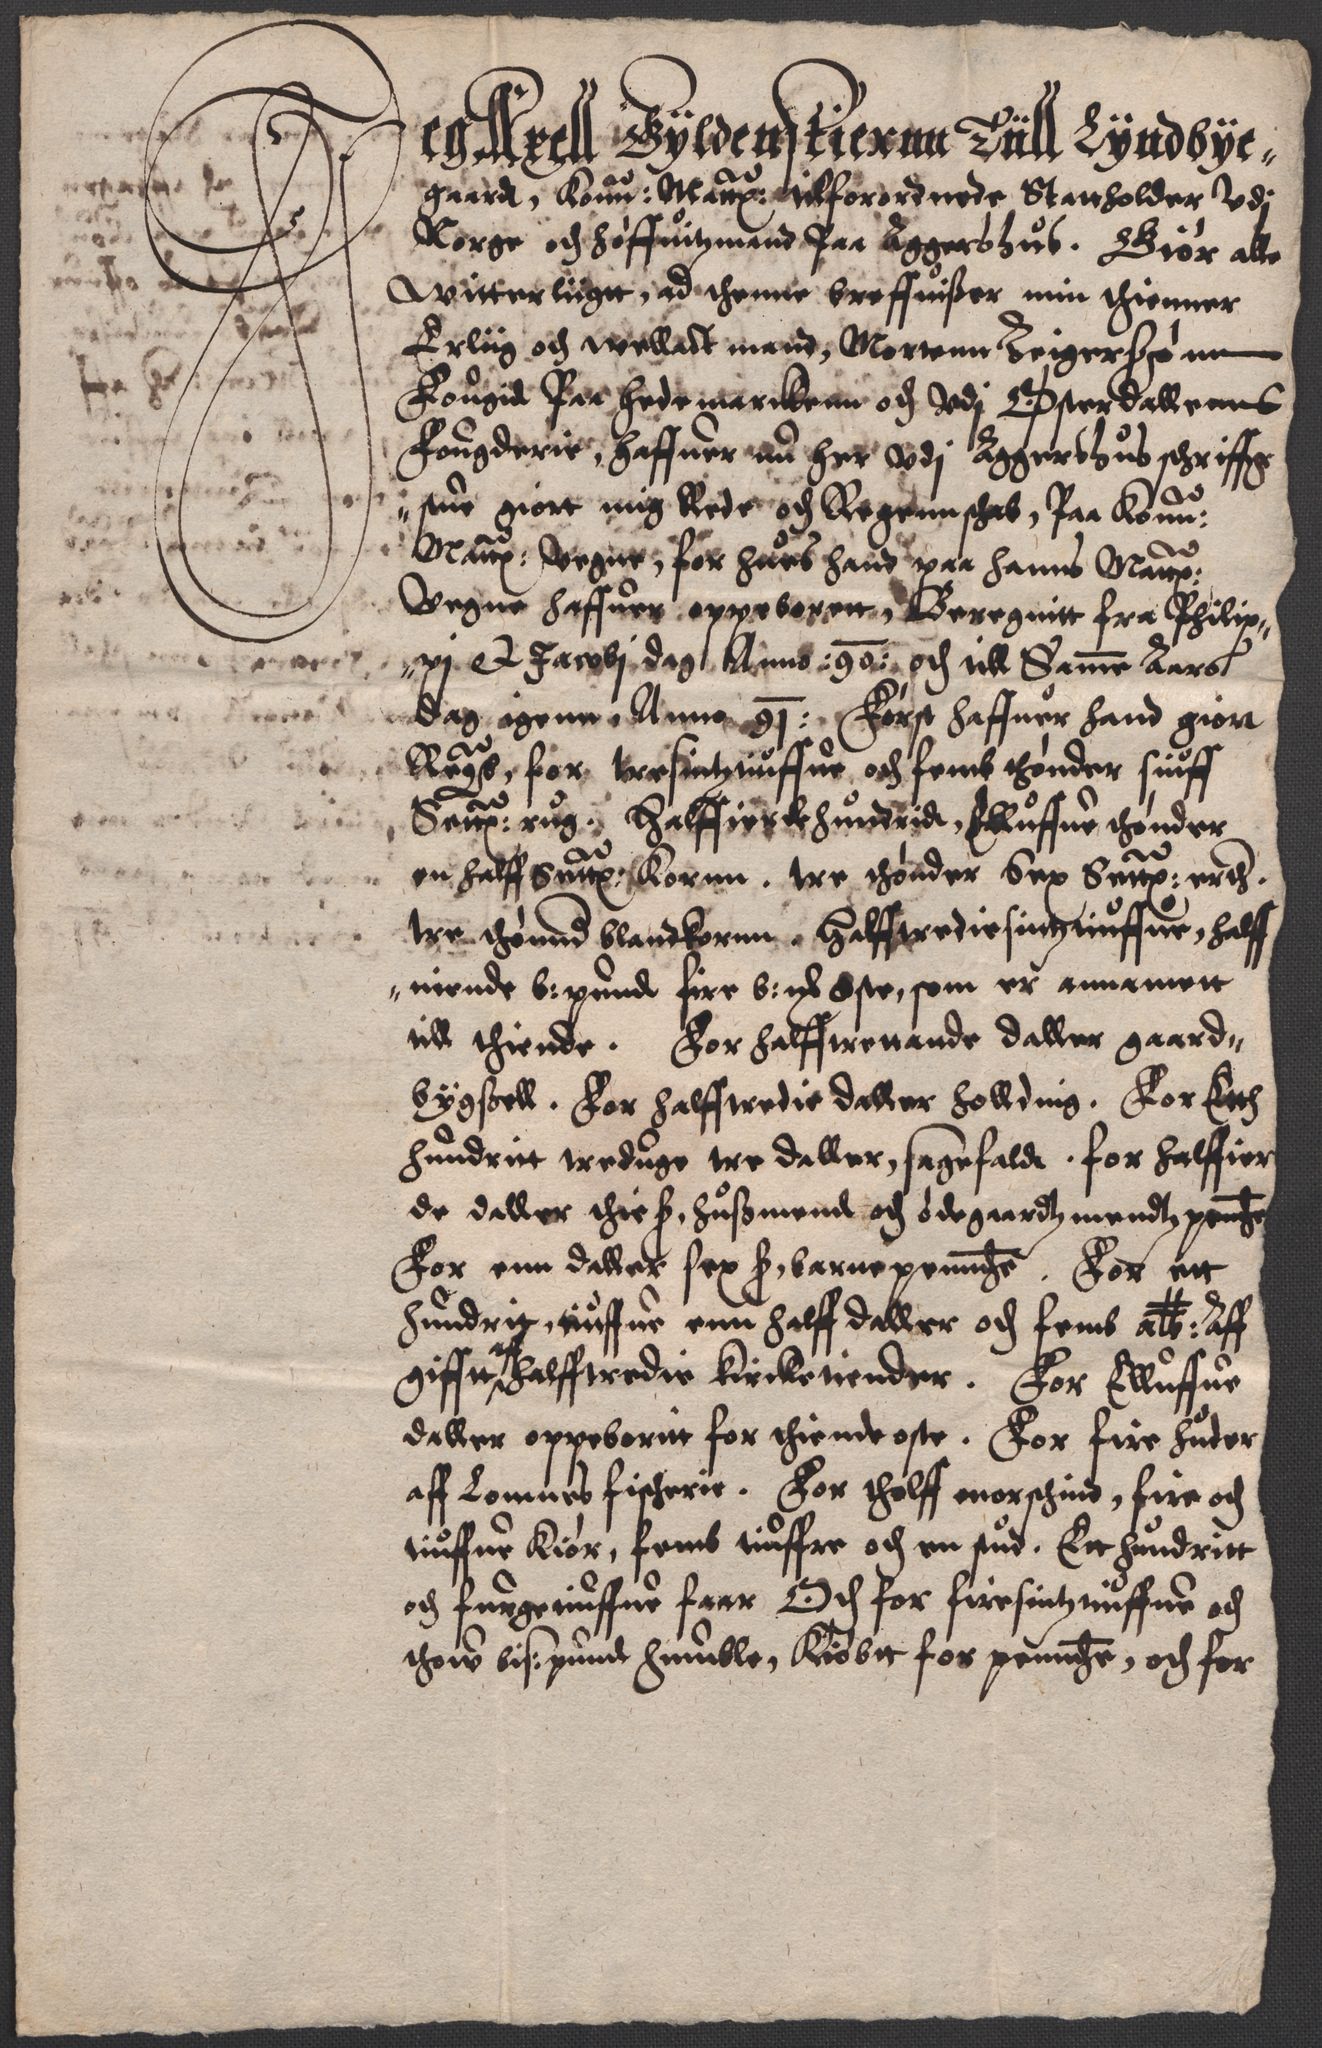 Jeg Axell Gÿldenstiernn Tiill Lÿndbÿe-
gaardt, Konn: Maÿtt: tilforordnede Stattholder Vdj
Norge och høffuitzmand Paa Aggershus. Giør alle
witterliigtt, ad thenne breffuißer min thienner
Erliig och wellactt mand, Mortenn Seigerßsønn
Fougid Paa hedemarckenn och Vdj Østerdallenns
Fougderie, haffuer nu her vdj Aggershus schriffer
"stue giort mig Rede och Regennschab, Paa Konn:
Maÿtt: Vegne, for hues hand paa hanns Maÿtt:
Vegne haffuer oppeborett, Beregnitt fra Philip-
"pj & Jacobj dag Anno :90: och till Samme Aars
dag igenn, Anno 91: Først haffuer hand giort
Regsb, for tresintztiuffue och femb thønder siuff
Settg: rug. Halffierdehundridt, Elluffue thønder
en halff Settg: Kornn. tre thønder Sex Settg: erth.
tre thønnd blandkornn. Halfftrediesintztiuffue, halff
"niende b: pundt fire b: mk Oste, som er annamett
till thiende. For halfftrettande daller gaard-
bÿgßell. For halfftredie daller holldning. For Etth
hundritt treduge tre daller, sagefaldt. for halffier
de daller thi ß, hußmendt och ødegaardtzmendtz pennge
For enn daller sex ß, barnepennge. For ett
hundrit, tiuffue enn halff daller och femb alb: Aff
gifftt aff halfftredie kircketiender. For Elluffue
daller oppeboritt for thiende oste. For fire huder
aff Lomnes fischerie. For tholff morschind, fire och
tiuffue Kiør, femb tiuffre och en stud. Ett hundritt
och siugetiuffue faar Och for firesintztiuffue och
thou bis: pundt humble, Kiøbtt for pennge, och for